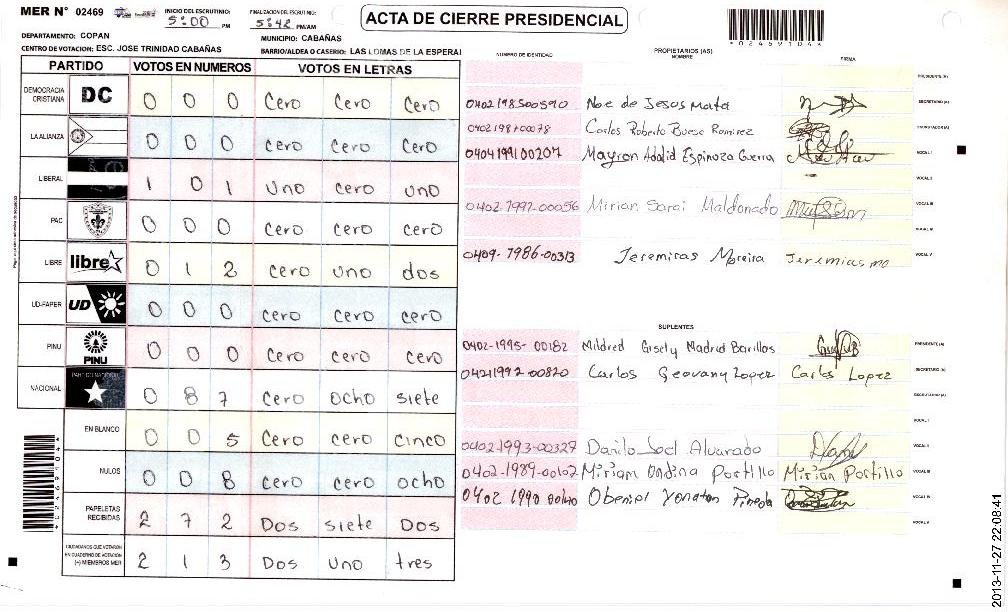 MER N° 02469
INICIO DEL ESCRUTINIO: 5:00 PM
FINALIZACION DEL ESCRUTINIO: 5:42 PM/AM
ACTA DE CIERRE PRESIDENCIAL
DEPARTAMENTO: COPAN
MUNICIPIO: CABAÑAS
CENTRO DE VOTACION: ESC. JOSE TRINIDAD CABAÑAS
BARRIO/ALDEA O CASERIO: LAS LOMAS DE LA ESPERAI
*02469104*
PARTIDO VOTOS EN NUMEROS VOTOS EN LETRAS
DEMOCRACIA CRISTIANA DC 0 0 0 Cero Cero Cero
LA ALIANZA 0 0 0 cero cero cero
LIBERAL 1 0 1 uno cero uno
PAC 0 0 0 cero cero cero
LIBRE libre 0 1 2 cero uno dos
UD-FAPER UD 0 0 0 cero cero cero
PINU PINU 0 0 0 cero cero cero
NACIONAL PARTIDO NACIONAL 0 8 7 cero ocho siete
EN BLANCO 0 0 5 cero cero cinco
NULOS 0 0 8 cero cero ocho
PAPELETAS RECIBIDAS 2 7 2 Dos siete Dos
CIUDADANOS QUE VOTARON EN CUADERNO DE VOTACION (+) MIEMBROS MER 2 1 3 Dos uno tres
NUMERO DE IDENTIDAD PROPIETARIOS (AS) NOMBRE FIRMA
PRESIDENTE (A)
0402198500590 Noe de Jesus Mata SECRETARIO (A)
Carlos Roberto Bueso Ramirez ESCRUTADOR (A)
0404199100207 Mayron Adalid Espinoza Guerra VOCAL I
VOCAL II
0402-1992-00056 Mirian Sarai Maldonado VOCAL III
VOCAL IV
0409-1986-00313 Jeremias Moreira Jeremias mo VOCAL V
SUPLENTES
0402-1995-00182 Mildred Gisely Madrid Barillos PRESIDENTE (A)
0421199200820 Carlos Geovany Lopez Carlos Lopez SECRETARIO (A)
ESCRUTADOR (A)
VOCAL I
0402-1993-00327 Danilo Joel Alvarado VOCAL II
0402-1989-00102 Miriam Ondina Portillo Mirian Portillo VOCAL III
0402 1990 Yonatan Pineda VOCAL IV
VOCAL V
2013-11-27 22:08:41